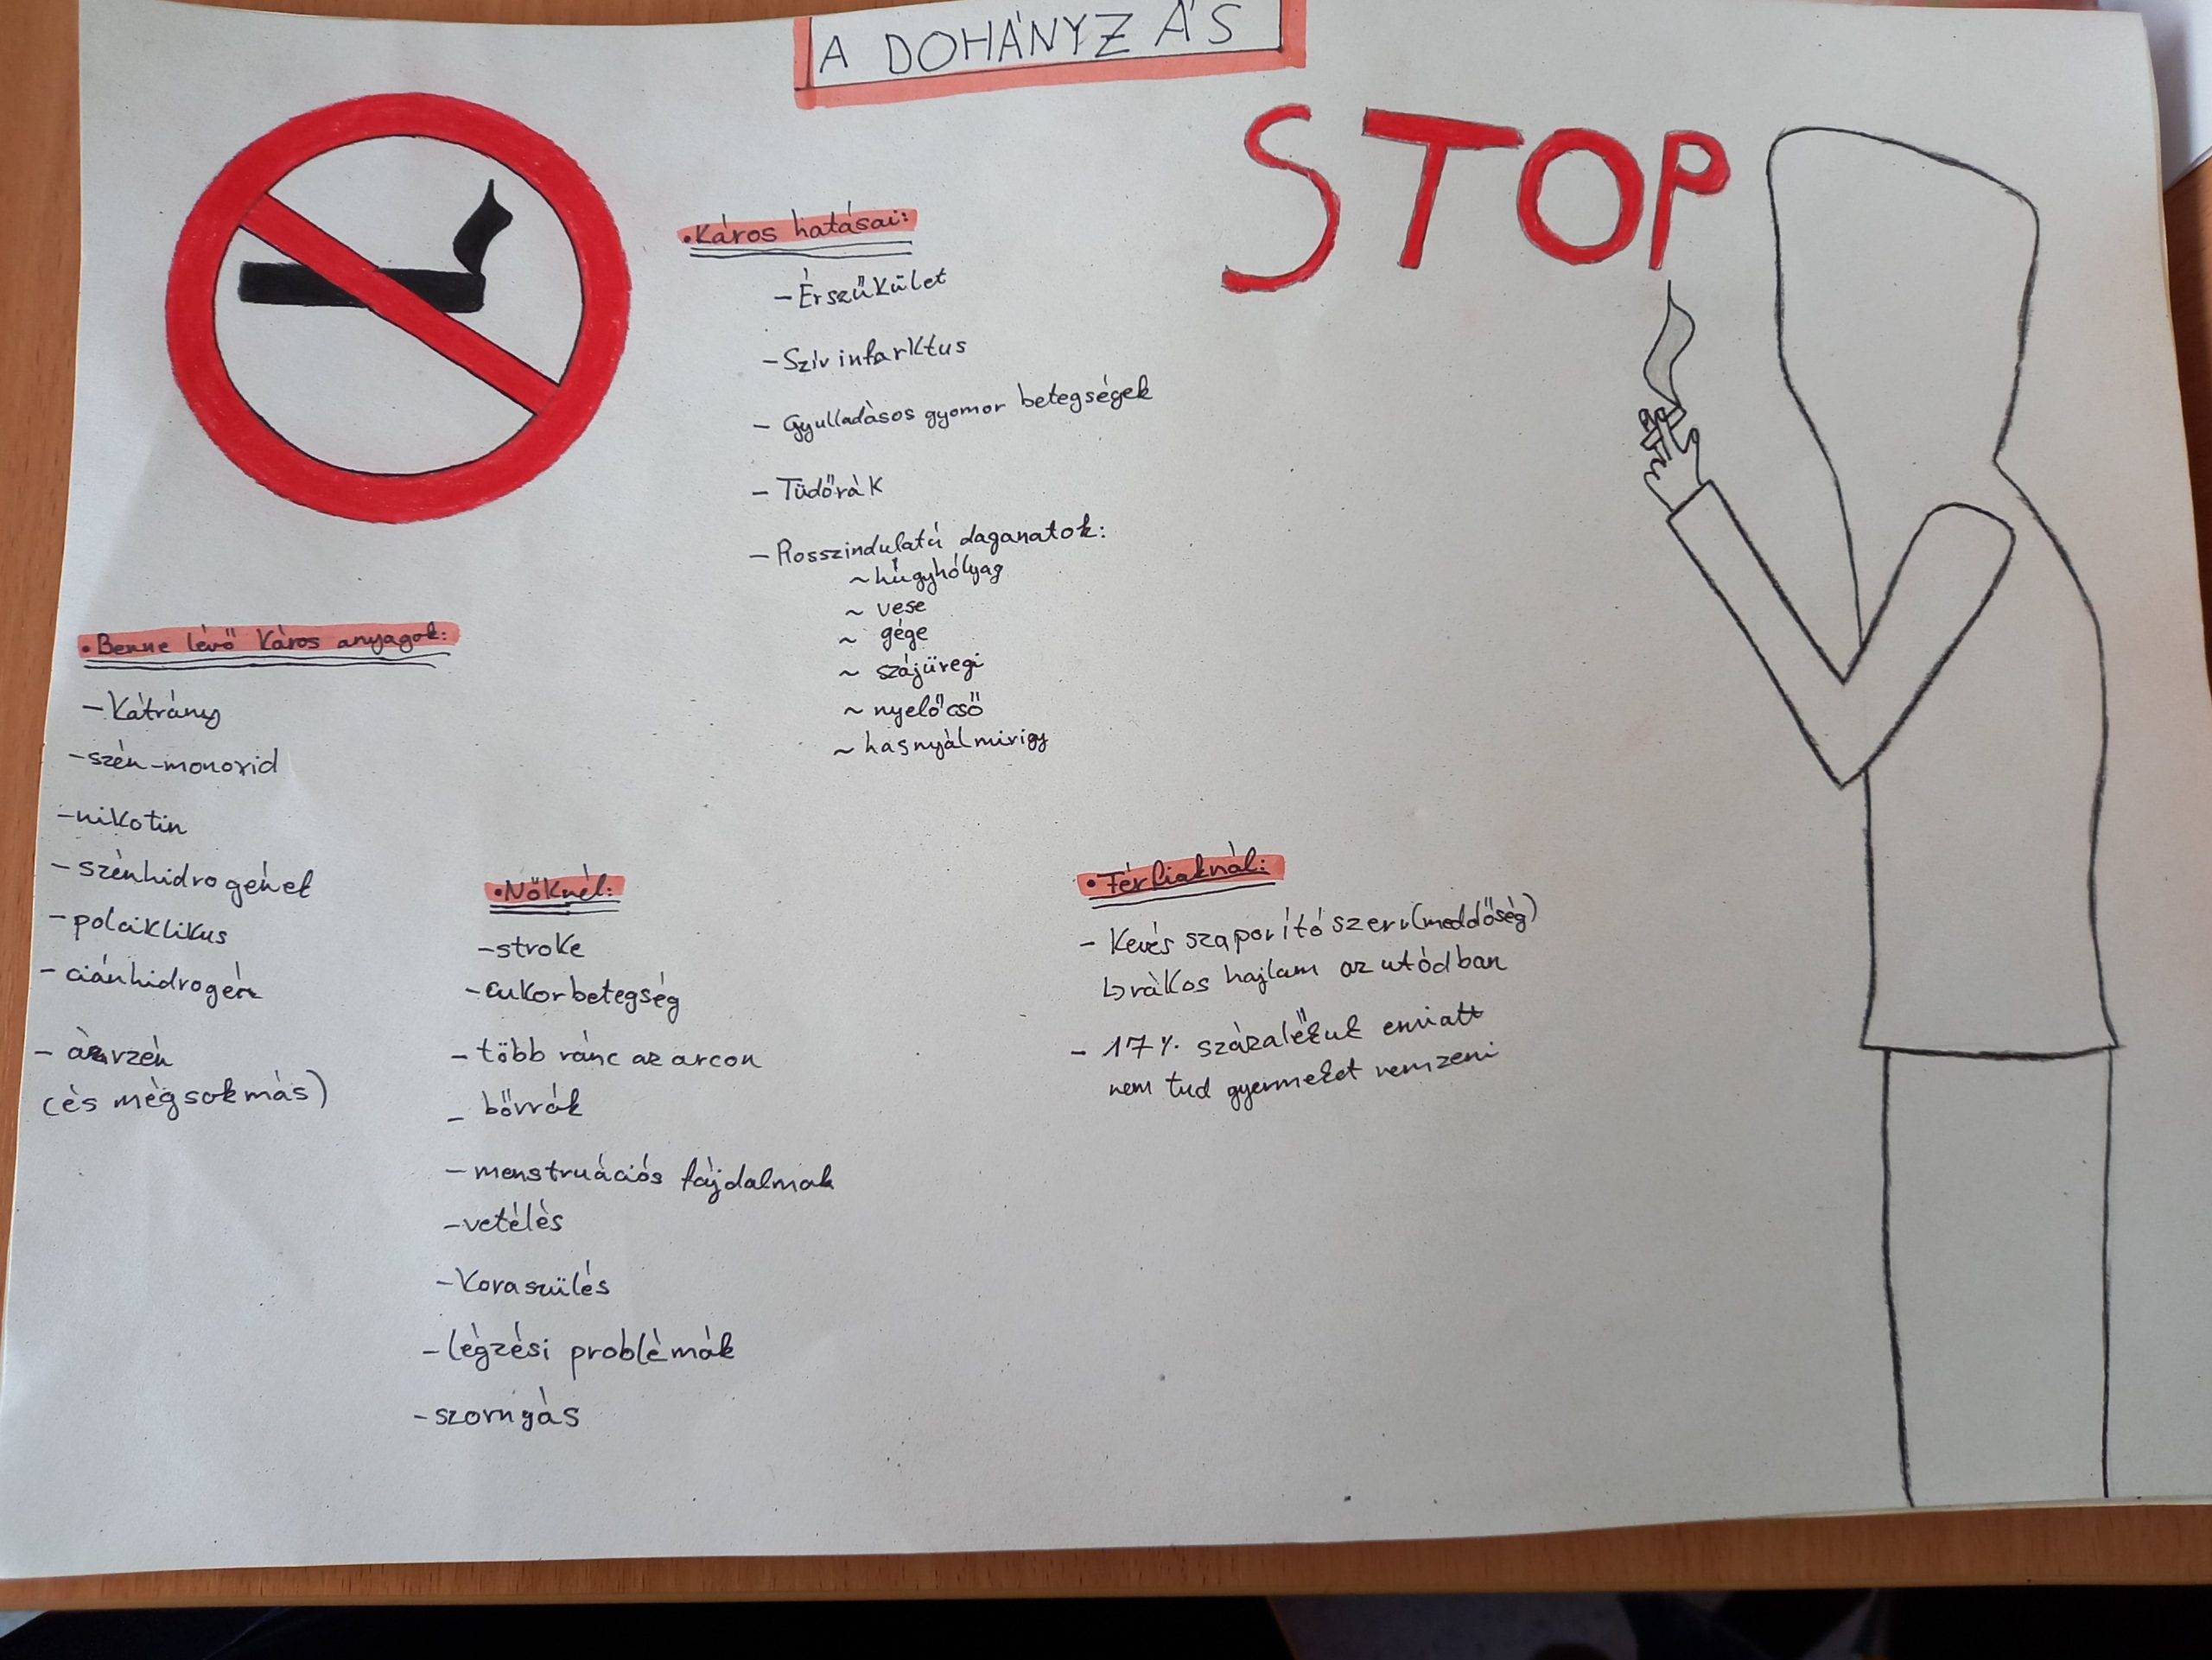 A DOHÁNYZÁS
STOP
•Káros hatásai:
-Érszűkület
-Szív infarktus
- Gyulladásos gyomor betegségek
- Tüdőrák
- Rosszindulatú daganatok:
~ húgyhólyag
~ vese
~ gége
~ szájüregi
~ nyelőcső
~ hasnyálmirigy
•Benne lévő káros anyagok:
-Kátrány
-szén-monoxid
-nikotin
-szénhidrogének
-polciklikus
-ciánhidrogén
- arzén
(és mégsokmás)
•Nőknél:
-stroke
-cukorbetegség
-több ránc az arcon
- bőrrák
-menstruációs fájdalmak
-vetélés
-Koraszülés
-légzési problémák
-szorngás
•Férfiaknál:
- Kevés szaporítószerv(meddőség)
↳rákos hajlam az utódban
- 17% százalékuk emiatt
nem tud gyermeket nemzeni